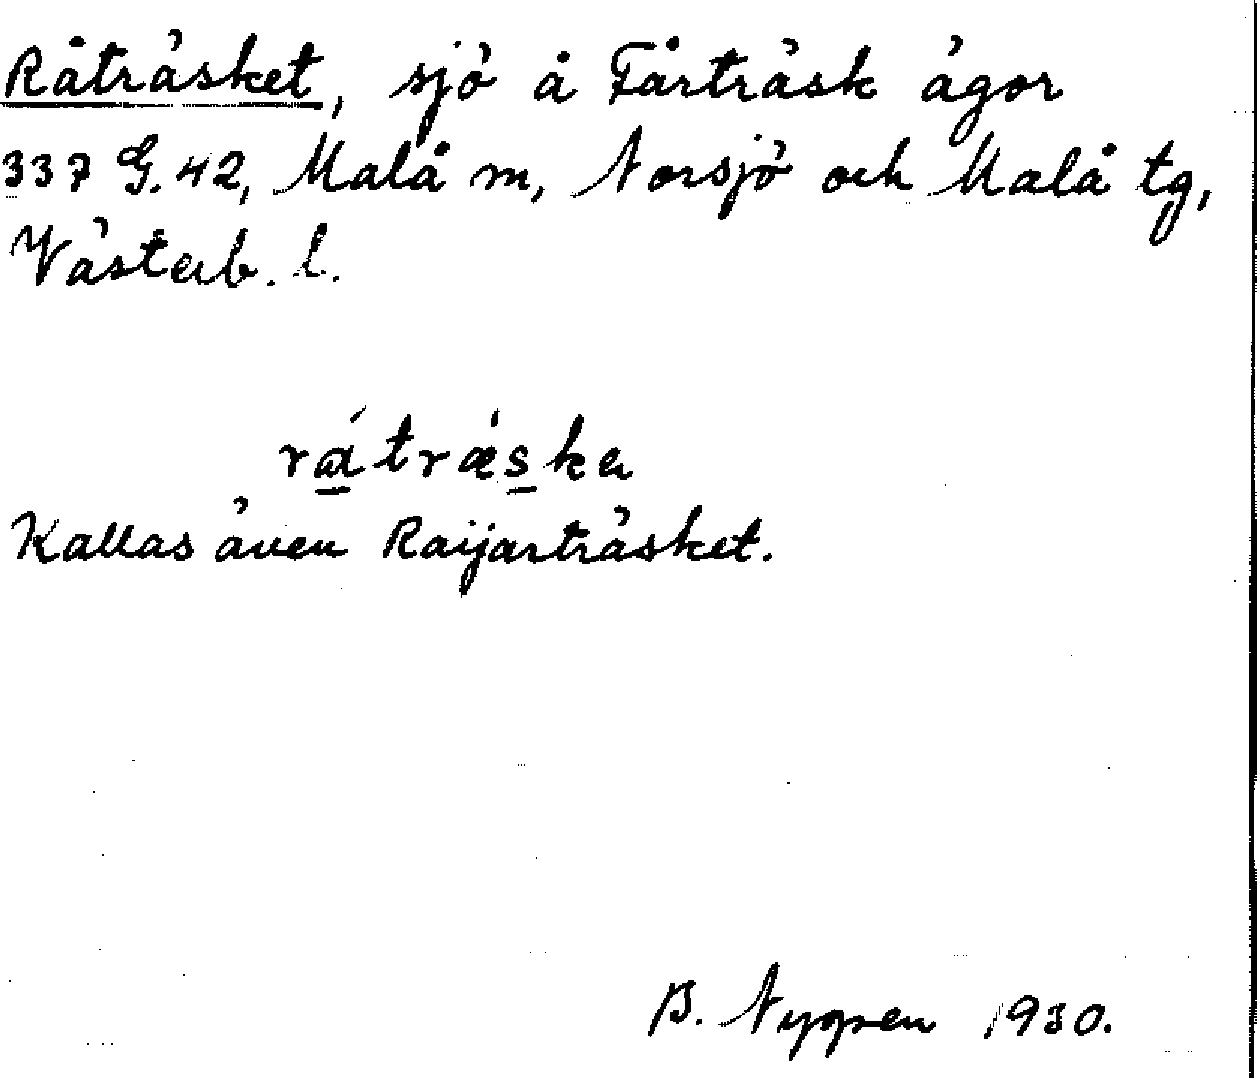 Råträsket, sjö å Fårträsk ägor
337 G. 42, Malå m, Norsjö och Malå tg,
Västerb. l.
råträska
Kallas även Raijarträsket.
B. Nygren 1930.